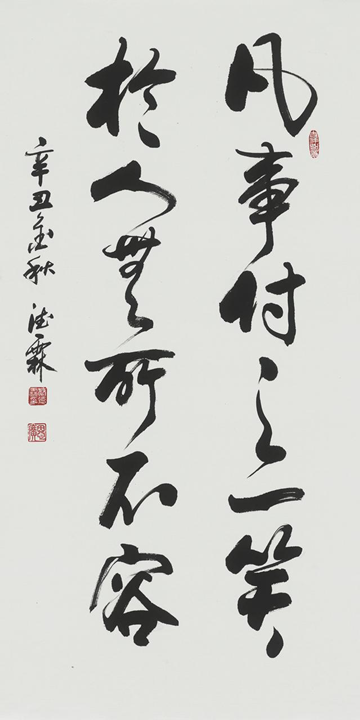 凡事付之一笑
於人無所不容
辛丑金秋 德霖